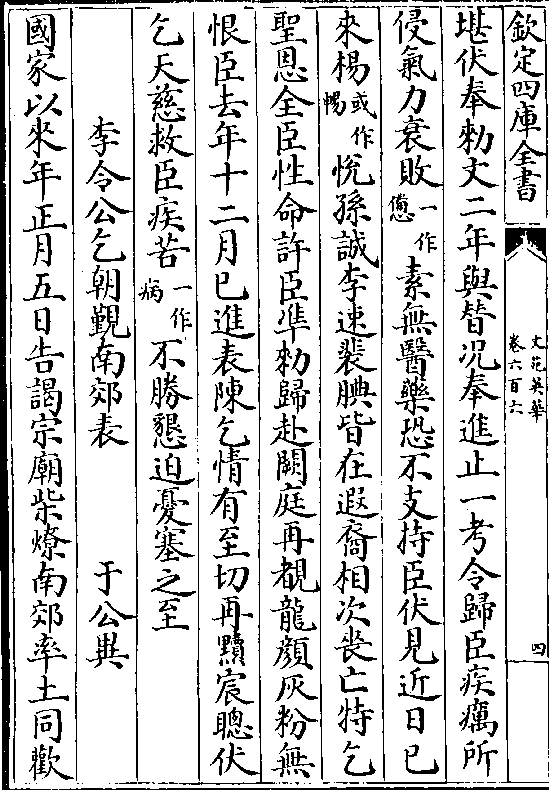 欽定四庫全書
文苑英華
卷六百六
四
堪伏奉勑文二年與替况奉進止一考令歸臣疾癘所
侵氣力衰敗一作憊素無醫藥恐不支持臣伏見近日已
來楊或作暢悅孫誠李速裴腆皆在遐裔相次喪亡特乞
聖恩全臣性命許臣準勑歸赴闕庭再覩龍顏灰粉無
恨臣去年十二月已進表陳乞情有至切再黷宸聰伏
乞天慈救臣疾苦一作病不勝懇迫憂塞之至
李令公乞朝覲南郊表　于公異
國家以來年正月五日告謁宗廟柴燎南郊率土同歡